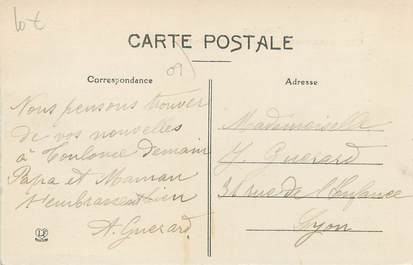 lot
CARTE POSTALE
09
Correspondance
Adresse
Nous pensons trouver
de vos nouvelles
à Toulouse demain
Papa et Maman
t'embrassent bien
A. Guerard
Mademoiselle
Y. Guerard
31 rue de l'Enfance
Lyon